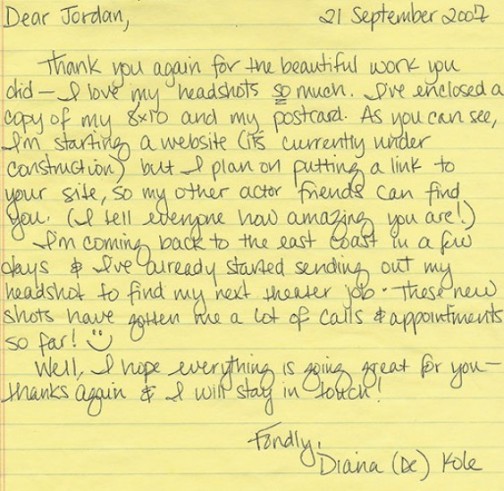 Dear Jordan, 21 September 2007
Thank you again for the beautiful work you
did - I love my headshots so much. I've enclosed a
copy of my 8x10 and my postcard. As you can see,
I'm starting a website (it's currently under
construction) but I plan on putting a link to
your site, so my other actor friends can find
you. (I tell everyone how amazing you are!)
I'm coming back to the east coast in a few
days & I've already started sending out my
headshot to find my next theater job. These new
shots have gotten me a lot of calls & appointments
so far! 
Well, I hope everything is going great for you-
thanks again & I will stay in touch!
Fondly,
Diana (De) Kole